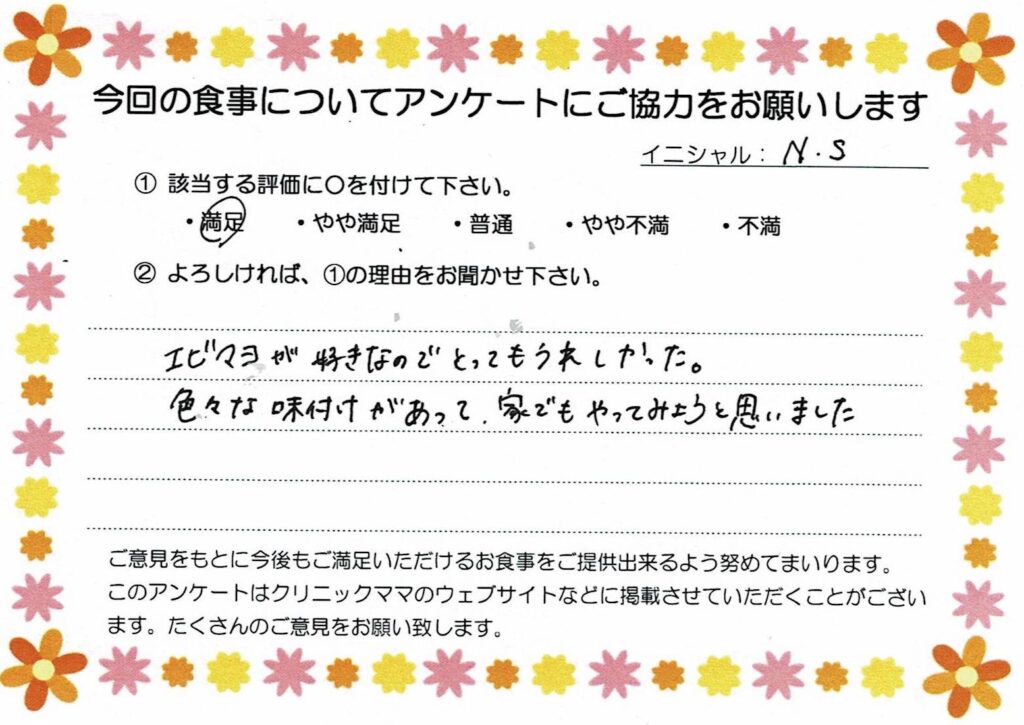 今回の食事についてアンケートにご協力をお願いします
イニシャル： N.S
① 該当する評価に〇を付けて下さい。
・満足 ・やや満足 ・普通 ・やや不満 ・不満
② よろしければ、①の理由をお聞かせ下さい。
エビマヨが好きなのでとってもうれしかった。
色々な味付けがあって、家でもやってみようと思いました
ご意見をもとに今後もご満足いただけるお食事をご提供出来るよう努めてまいります。
このアンケートはクリニックママのウェブサイトなどに掲載させていただくことがござい
ます。たくさんのご意見をお願い致します。